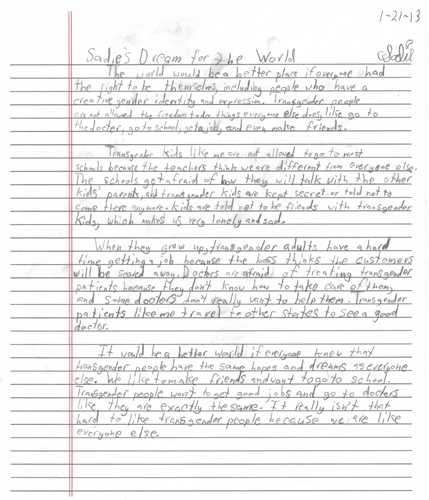 1-21-13
Sadie's Dream for The World
Sadie
The world would be a better place if everyone had
the right to be themselves, including people who have a
creative gender identity and expression. Transgender people
are not allowed the freedom to do things everyone else does, like go to
the doctor, go to school, get a job, and even make friends.
Transgender kids like me are not allowed to go to most
schools because the teachers think we are different from everyone else.
The schools get afraid of how they will talk with the other
kids' parents, and transgender kids are kept secret or told not to
come there anymore. Kids are told not to be friends with transgender
kids, which makes us very lonely and sad.
When they grow up, transgender adults have a hard
time getting a job because the boss thinks the customers
will be scared away. Doctors are afraid of treating transgender
patients because they don't know how to take care of them,
and some doctors don't really want to help them. Transgender
patients like me travel to other states to see a good
doctor.
It would be a better world if everyone knew that
transgender people have the same hopes and dreams as everyone
else. We like to make friends and want to go to school.
Transgender people want to get good jobs and go to doctors
like they are exactly the same. It really isn't that
hard to like transgender people because we are like
everyone else.